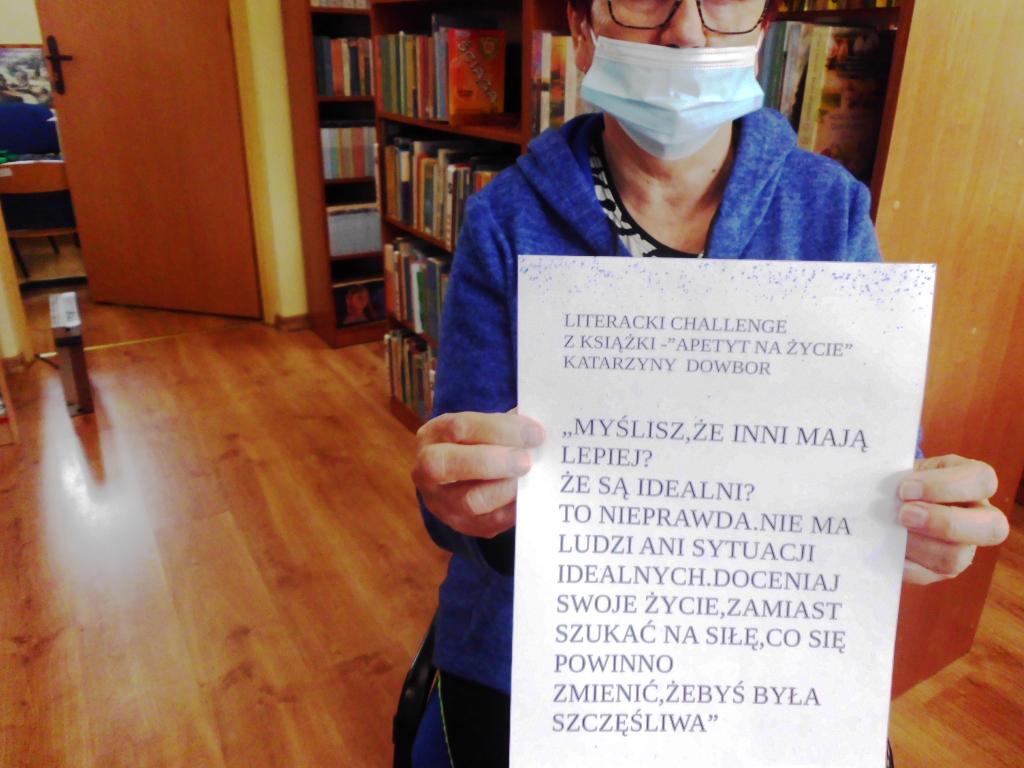 LITERACKI CHALLENGE
Z KSIĄŻKI -"APETYT NA ŻYCIE"
KATARZYNY DOWBOR
„MYŚLISZ,ŻE INNI MAJĄ
LEPIEJ?
ŻE SĄ IDEALNI?
TO NIEPRAWDA.NIE MA
LUDZI ANI SYTUACJI
IDEALNYCH.DOCENIAJ
SWOJE ŻYCIE,ZAMIAST
SZUKAĆ NA SIŁĘ,CO SIĘ
POWINNO
ZMIENIĆ,ŻEBYŚ BYŁA
SZCZĘŚLIWA”